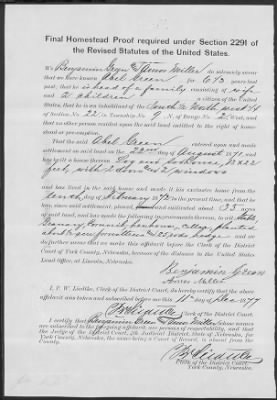 Final Homestead Proof required under Section 2291 of
the Revised Statutes of the United States.
We Benjamin Green & Amos Miller do solemnly swear
that we have known Abel Green for 6 1/2 years last
past; that he is head of a family consisting of wife
and 2 children & a citizen of the United
States; that he is an inhabitant of the South ½ North west ¼
of Section No. 22 in Township No. 9 N. of Range No. 2 West, and
that no other person resided upon the said land entitled to the right of home-
stead or pre-emption.
That the said Abel Green entered upon and made
settlement on said land on the 22 day of August 1871, and
has built a house thereon Log and
feet, with 2 doors and 2 windows
and has lived in the said house and made it his exclusive home from the
tenth day of February 1872 to the present time, and that he
has, since said settlement, cultivated about 35 acres
of said land, and has made the following improvements thereon, to wit: Stable
Granary, planted
about 2 acres forest trees and hedge and we
do further swear that we make this affidavit before the Clerk of the District
Court of York County, Nebraska, for the distance to the United States Land
office, at Lincoln, Nebraska.
Benjamin Green
Amos Miller
I, F. W. Liedtke, Clerk of the District Court, do hereby certify that the above
affidavit was taken and subscribed before me this 11th day of Dec 1877
F W Liedtke
Clerk of the District Court.
I certify that Benjamin Green & Amos Miller whose names
are subscribed to the foregoing affidavit, are persons of respectability, and that
the Judge of the District Court, 4th Judicial District, State of Nebraska, for
York County, Nebraska, the same being a Court of Record, is absent from the
County.
F W Liedtke
Clerk of the District Court,
York County, Nebraska.